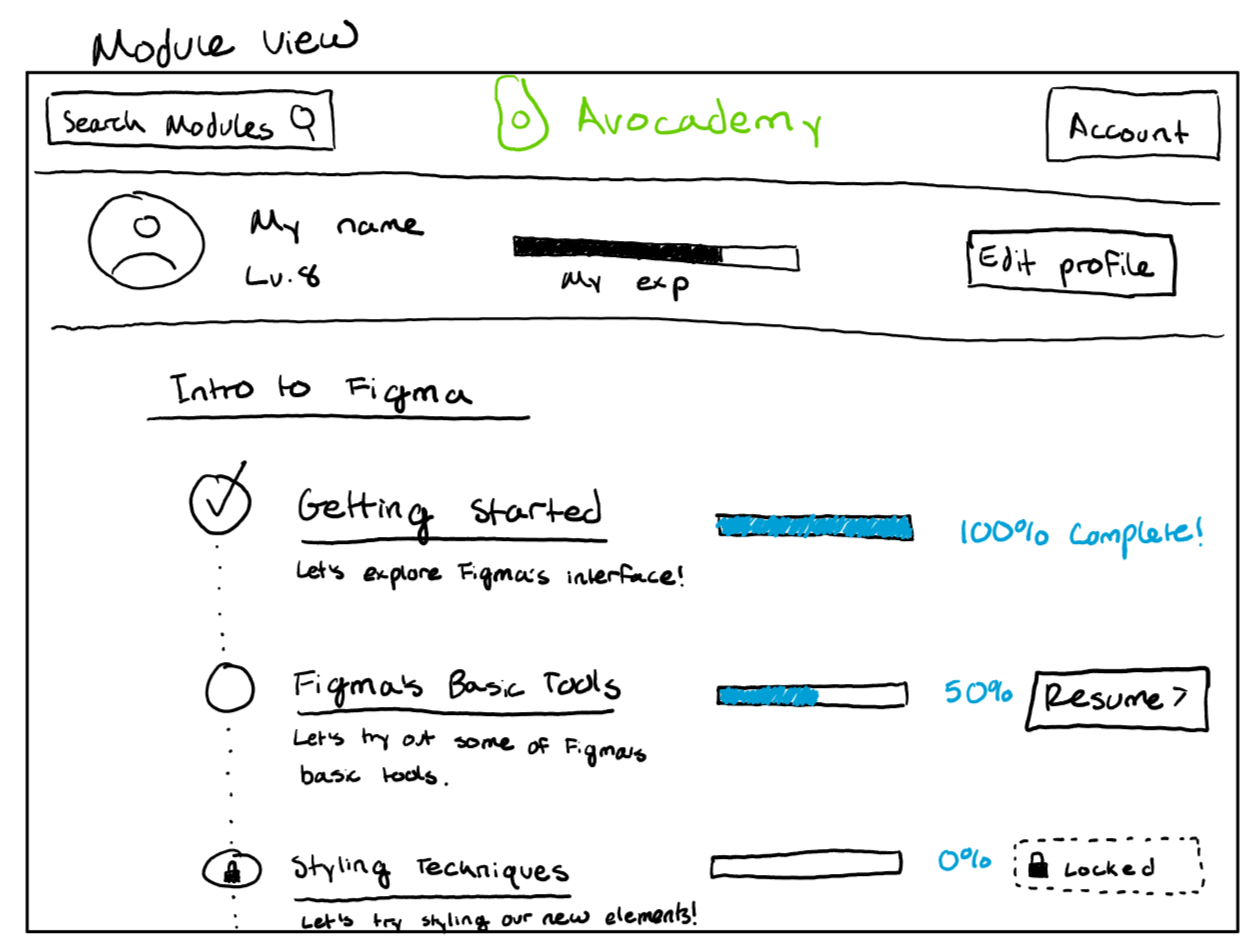 Module view
Search Modules
Avocademy
Account
My name
Lv.8
My exp
Edit profile
Intro to Figma
Getting Started
Let's explore Figma's interface!
100% Complete!
Figma's Basic Tools
Let's try out some of Figma's
basic tools.
50%
Resume >
Styling Techniques
Let's try styling our new elements!
0%
Locked